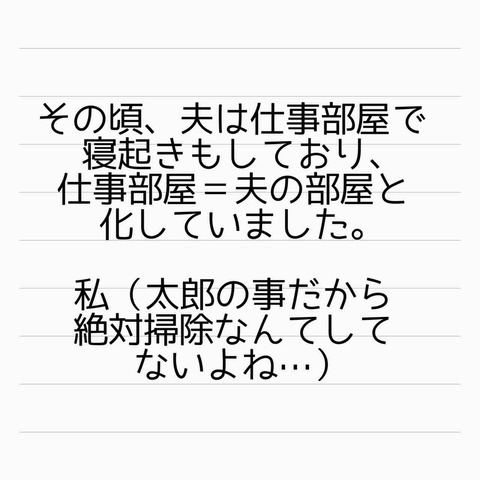 その頃、夫は仕事部屋で
寝起きもしており、
仕事部屋＝夫の部屋と
化していました。
私（太郎の事だから
絶対掃除なんてして
ないよね…）